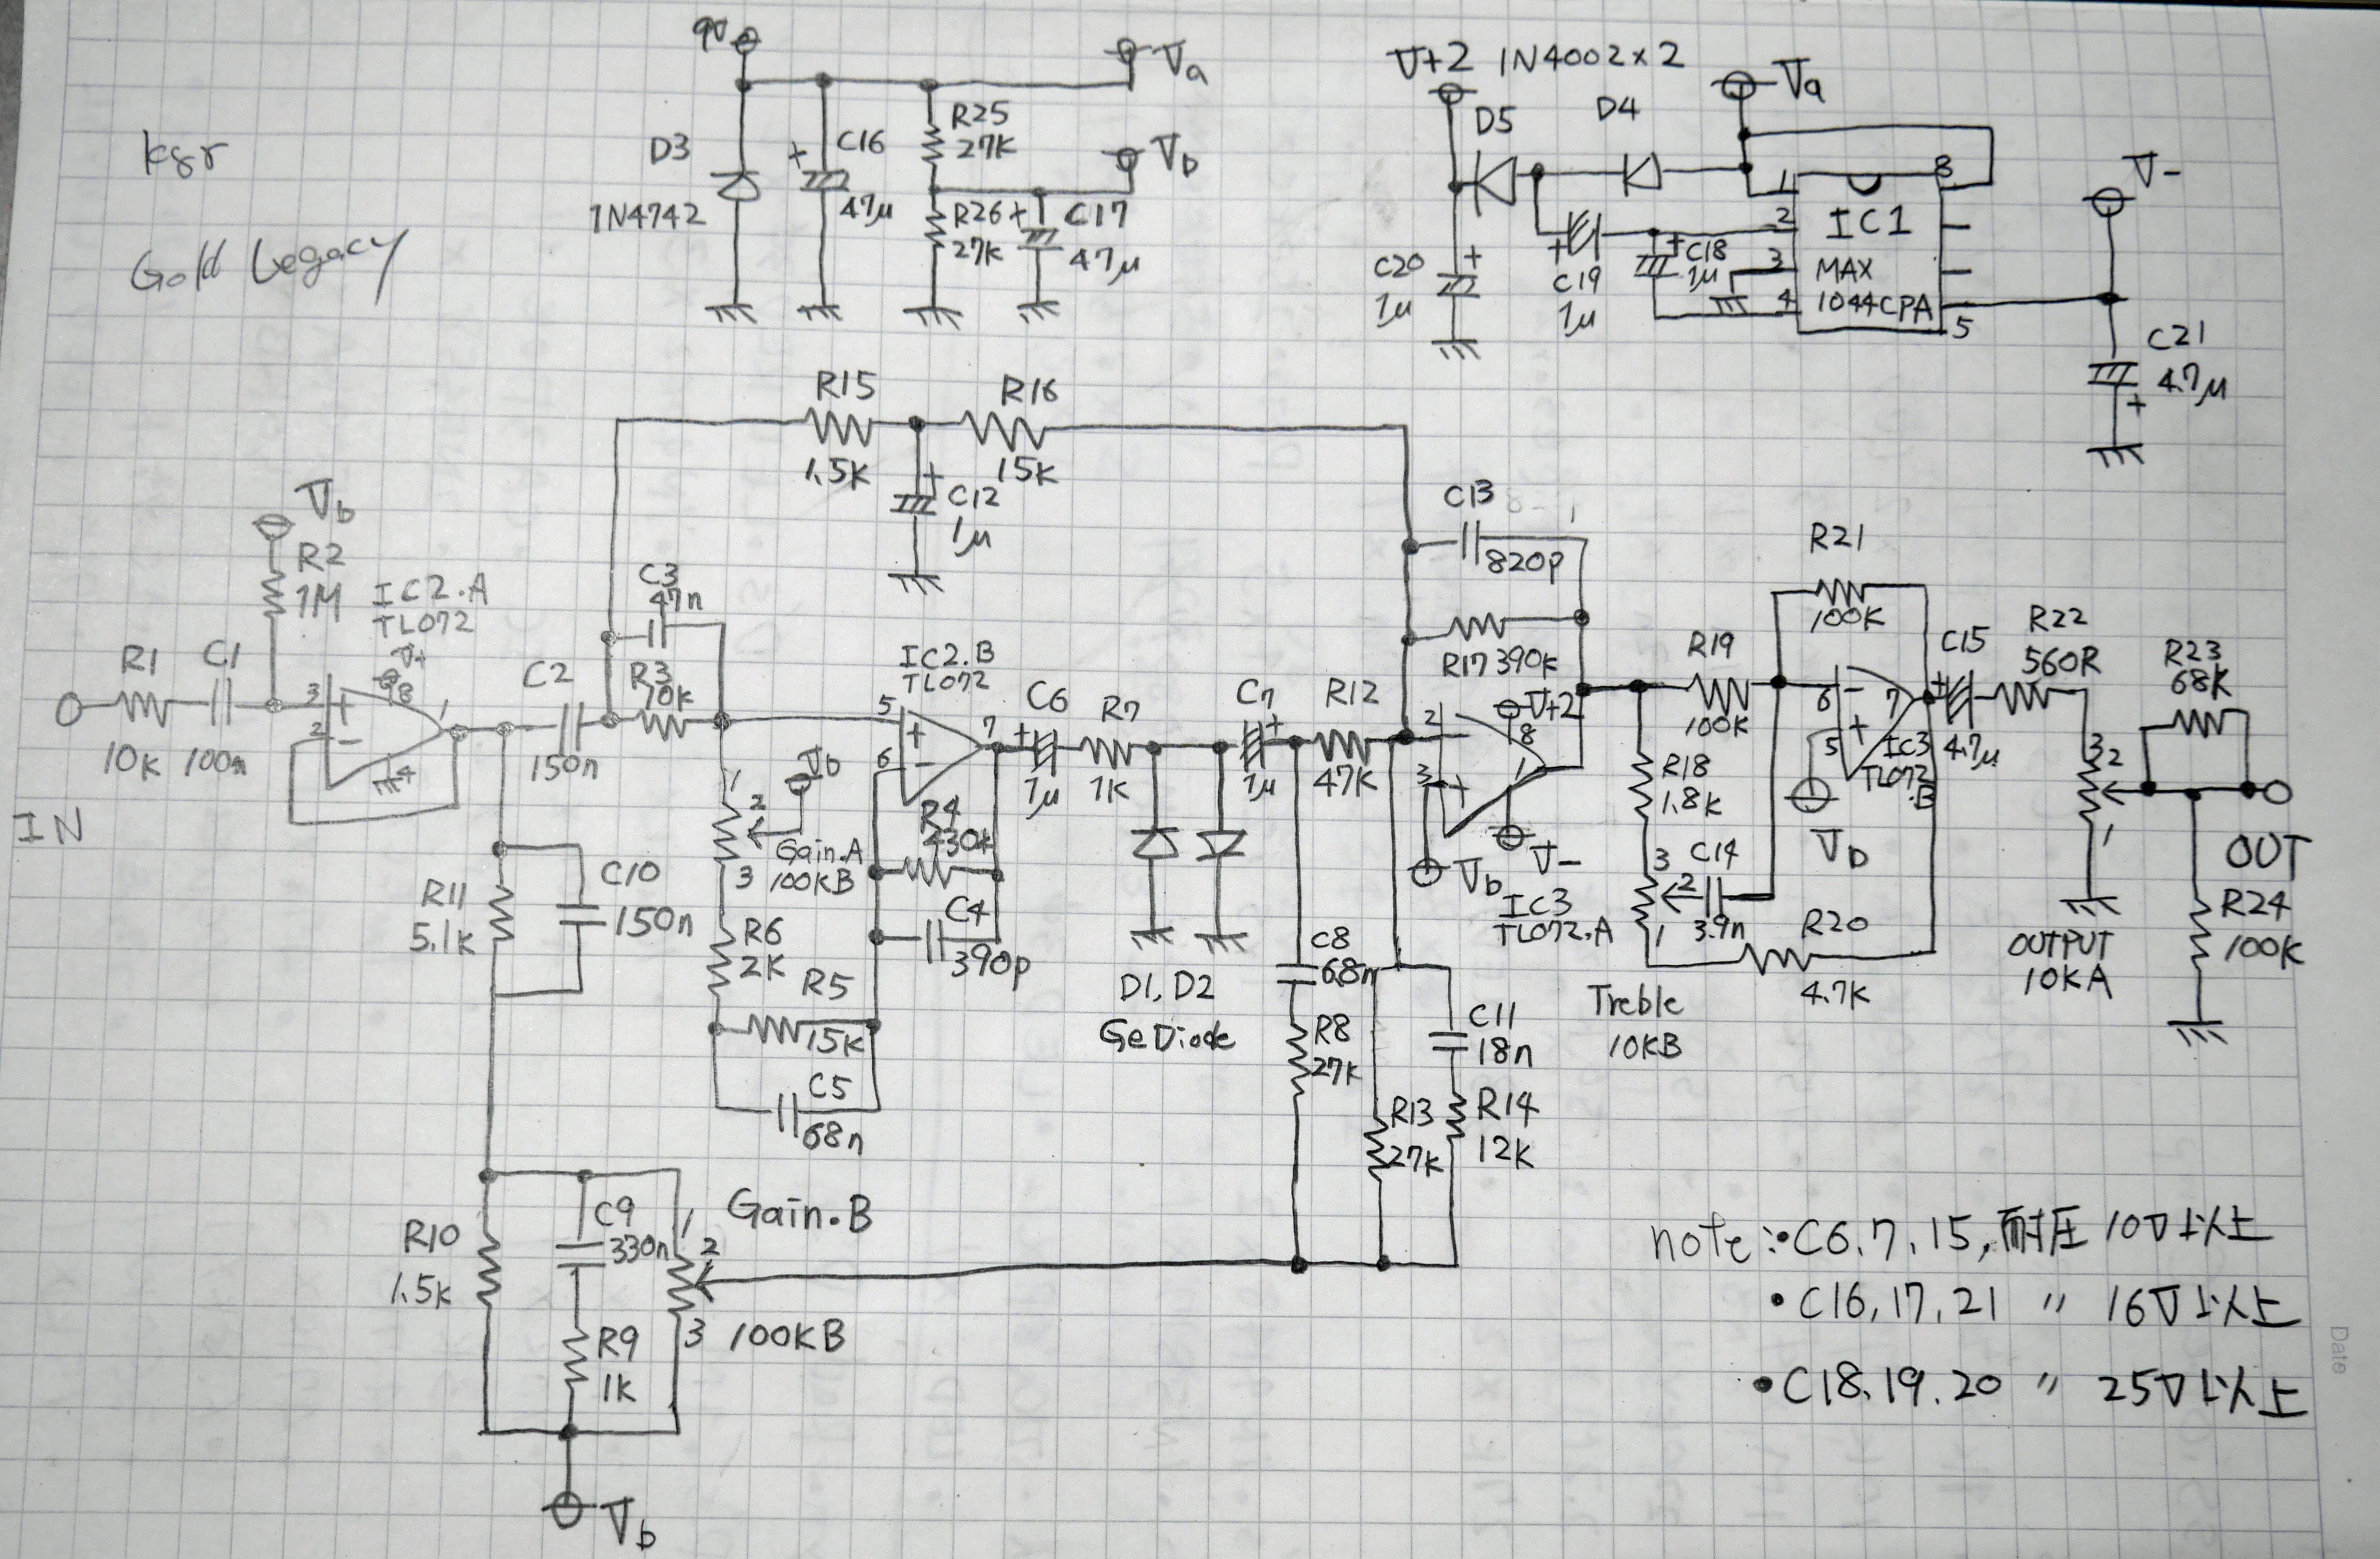 9V
Va
V+2 1N4002×2
Va
D5
D4
R25
27K
D3
C16
+
47μ
Vb
1N4742
R26
27K
+
C17
47μ
ksr
Gold Legacy
1
8
2
IC1
3
MAX
4
1044CPA
5
V-
C20
+
1μ
+
C19
1μ
+
C18
1μ
C21
4.7μ
+
R15
1.5K
R16
15K
+
C12
1μ
C13
820p
Vb
R2
1M
IC2.A
TL072
V+
8
R1
10K
C1
100n
3
+
2
-
1
4
IN
C2
150n
C3
47n
R3
10K
IC2.B
TL072
5
+
6
-
7
+
C6
1μ
R7
1K
C7
+
1μ
R12
47K
R17 390K
V+2
8
2
-
3
+
1
Vb
V-
IC3
TL072.A
R19
100K
R21
100K
6
-
7
5
+
IC3
TL072
.B
Vb
+
C15
4.7μ
R22
560R
R23
68K
3
2
1
OUT
R24
100K
OUTPUT
10KA
R18
1.8K
3
2
1
C14
3.9n
R20
4.7K
Treble
10KB
1
2
3
Vb
Gain.A
100KB
R4
430K
C4
390p
R6
2K
R5
15K
C5
68n
R11
5.1K
C10
150n
D1, D2
Ge Diode
C8
68n
R8
27K
R13
27K
C11
18n
R14
12K
R10
1.5K
C9
330n
R9
1K
Gain.B
1
2
3
100KB
Vb
note:・C6.7.15,耐圧10V以上
・C16,17,21 〃 16V以上
・C18.19.20 〃 25V以上
Date